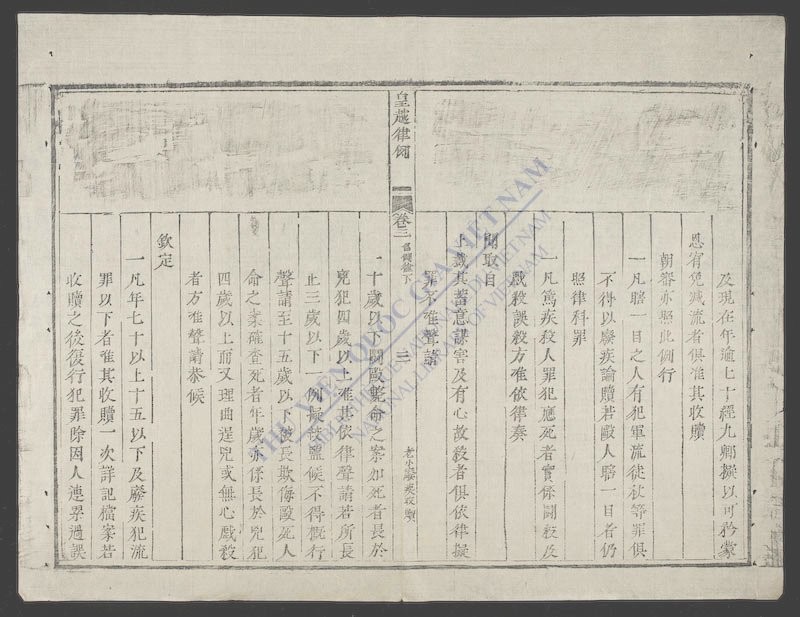 及現在年逾七十經九卿擬以可矜蒙
恩宥免減流者俱准其收贖
朝審亦照此例行
一凡瞎一目之人有犯軍流徒杖等罪俱
不得以廢疾論贖若毆人瞎一目者仍
照律科罪
一凡篤疾殺人罪犯應死者實係鬪殺及
戲殺誤殺方准依律奏
聞取自
上裁其蓄意謀害及有心故殺者俱依律擬
罪不准聲請
皇越律例
卷三
名例律下
三
老小廢疾收贖
一十歲以下鬪毆斃命之案如死者長於
兇犯四歲以上准其依律聲請若所長
止三歲以下一例擬絞監候不得槪行
聲請至十五歲以下被長欺侮毆死人
命之案確查死者年歲亦係長於兇犯
四歲以上而又理曲逞兇或無心戲殺
者方准聲請恭候
欽定
一凡年七十以上十五以下及廢疾犯流
罪以下者准其收贖一次詳記檔案若
收贖之後復行犯罪除因人連累過誤
THƯ VIỆN QUỐC GIA VIỆT NAM
BIBLIOTHÈQUE NATIONALE DU VIETNAM
NATIONAL LIBRARY OF VIETNAM